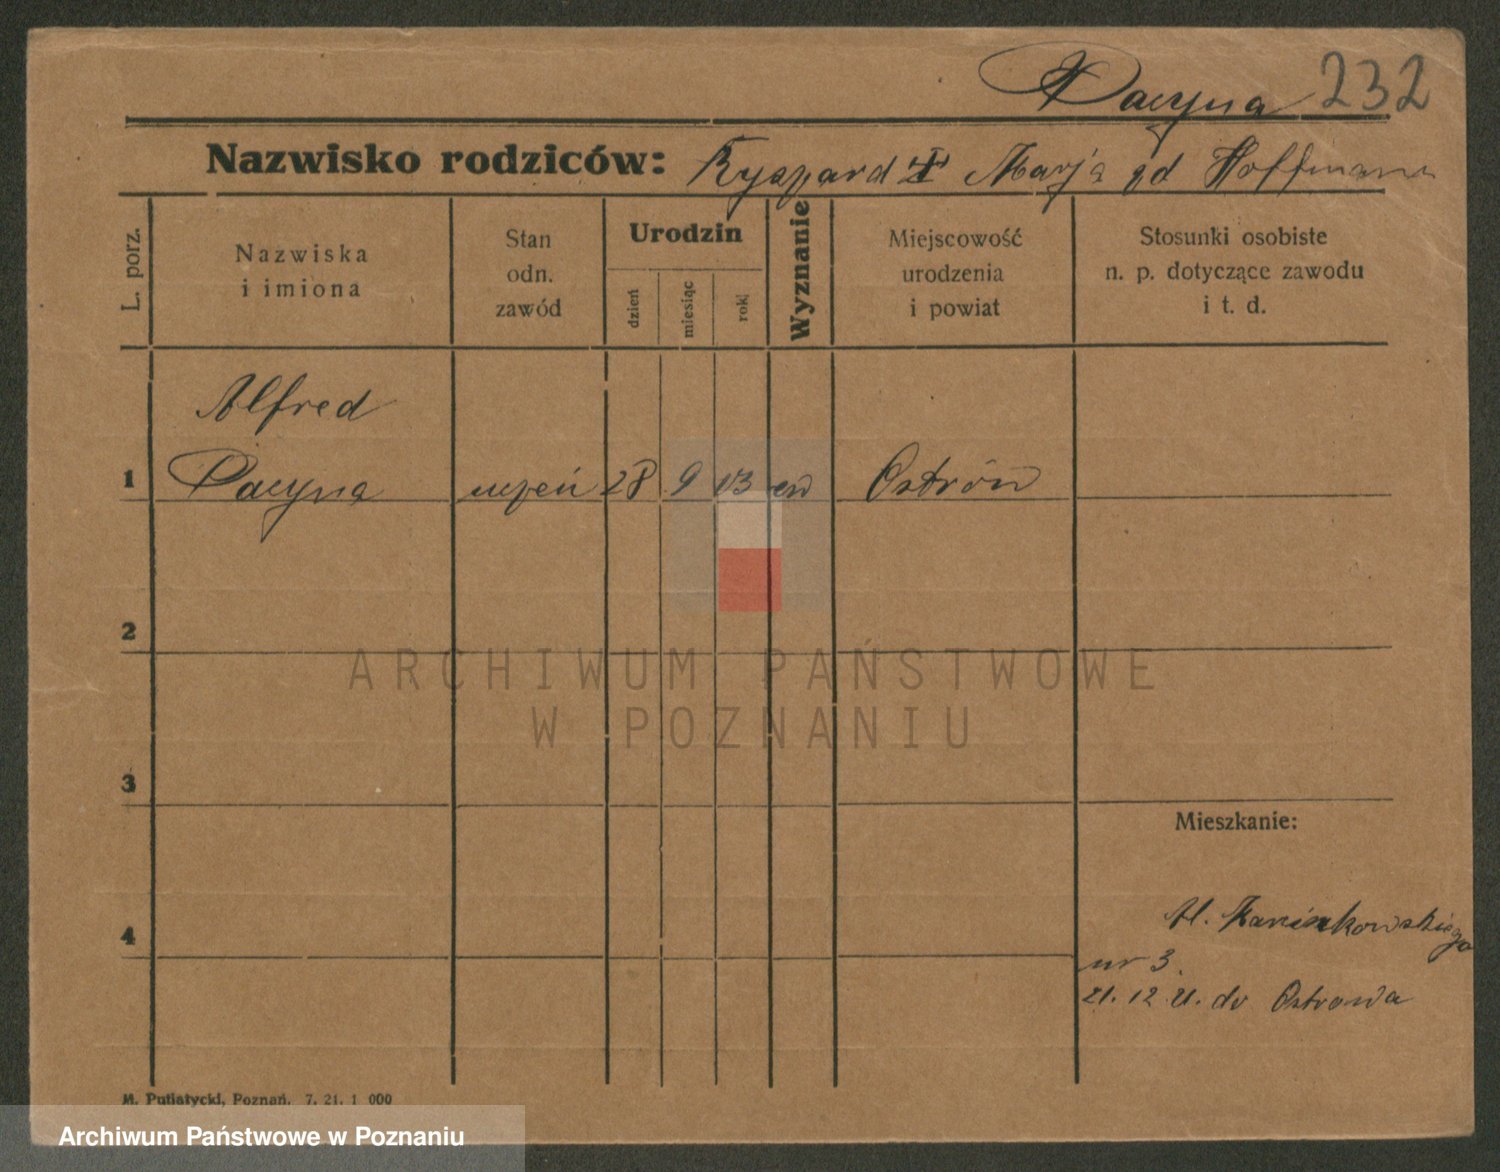 Pacyna 232
Nazwisko rodziców: Ryszard Marja zd Hoffmann
L. porz.
Nazwiska
i imiona
Stan
odn.
zawód
Urodzin
dzień
miesiąc
rok
Wyznanie
Miejscowość
urodzenia
i powiat
Stosunki osobiste
n. p. dotyczące zawodu
i t. d.
Alfred
1 Pacyna uczeń 28 9 03 ew Ostrów
2
ARCHIWUM PAŃSTWOWE
W POZNANIU
3
Mieszkanie:
4
Al. Marcinkowskiego
nr 3.
21. 12. 21. do Ostrowa
M. Putiatycki, Poznań. 7. 21. 1 000
Archiwum Państwowe w Poznaniu